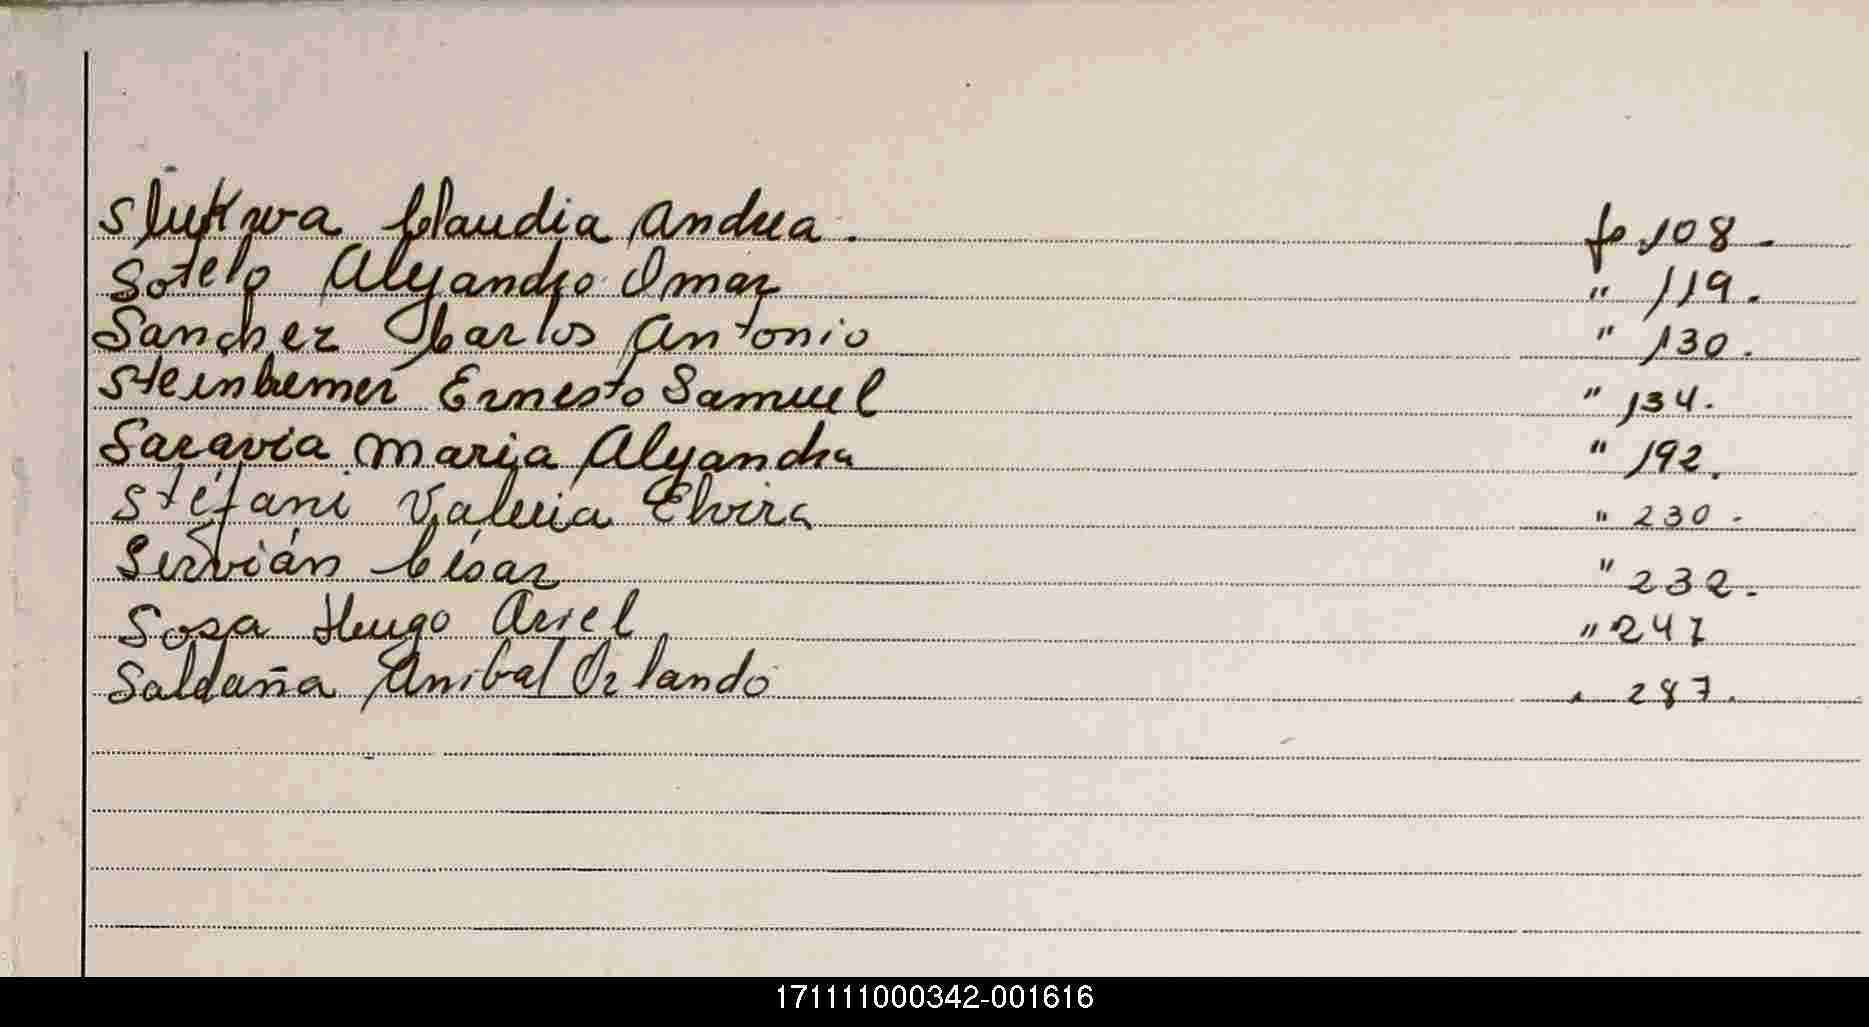 Slukwa Claudia Andrea. fo 108.
Sotelo Alejandro Omar " 119.
Sanchez Carlos Antonio " 130.
Ernesto Samuel " 134.
Saravia Maria Alejandra " 192.
Stéfani Valeria Elvira " 230.
Servián César " 232.
Sosa Hugo Ariel " 247
Saldaña Anibal Orlando " 287.
171111000342-001616